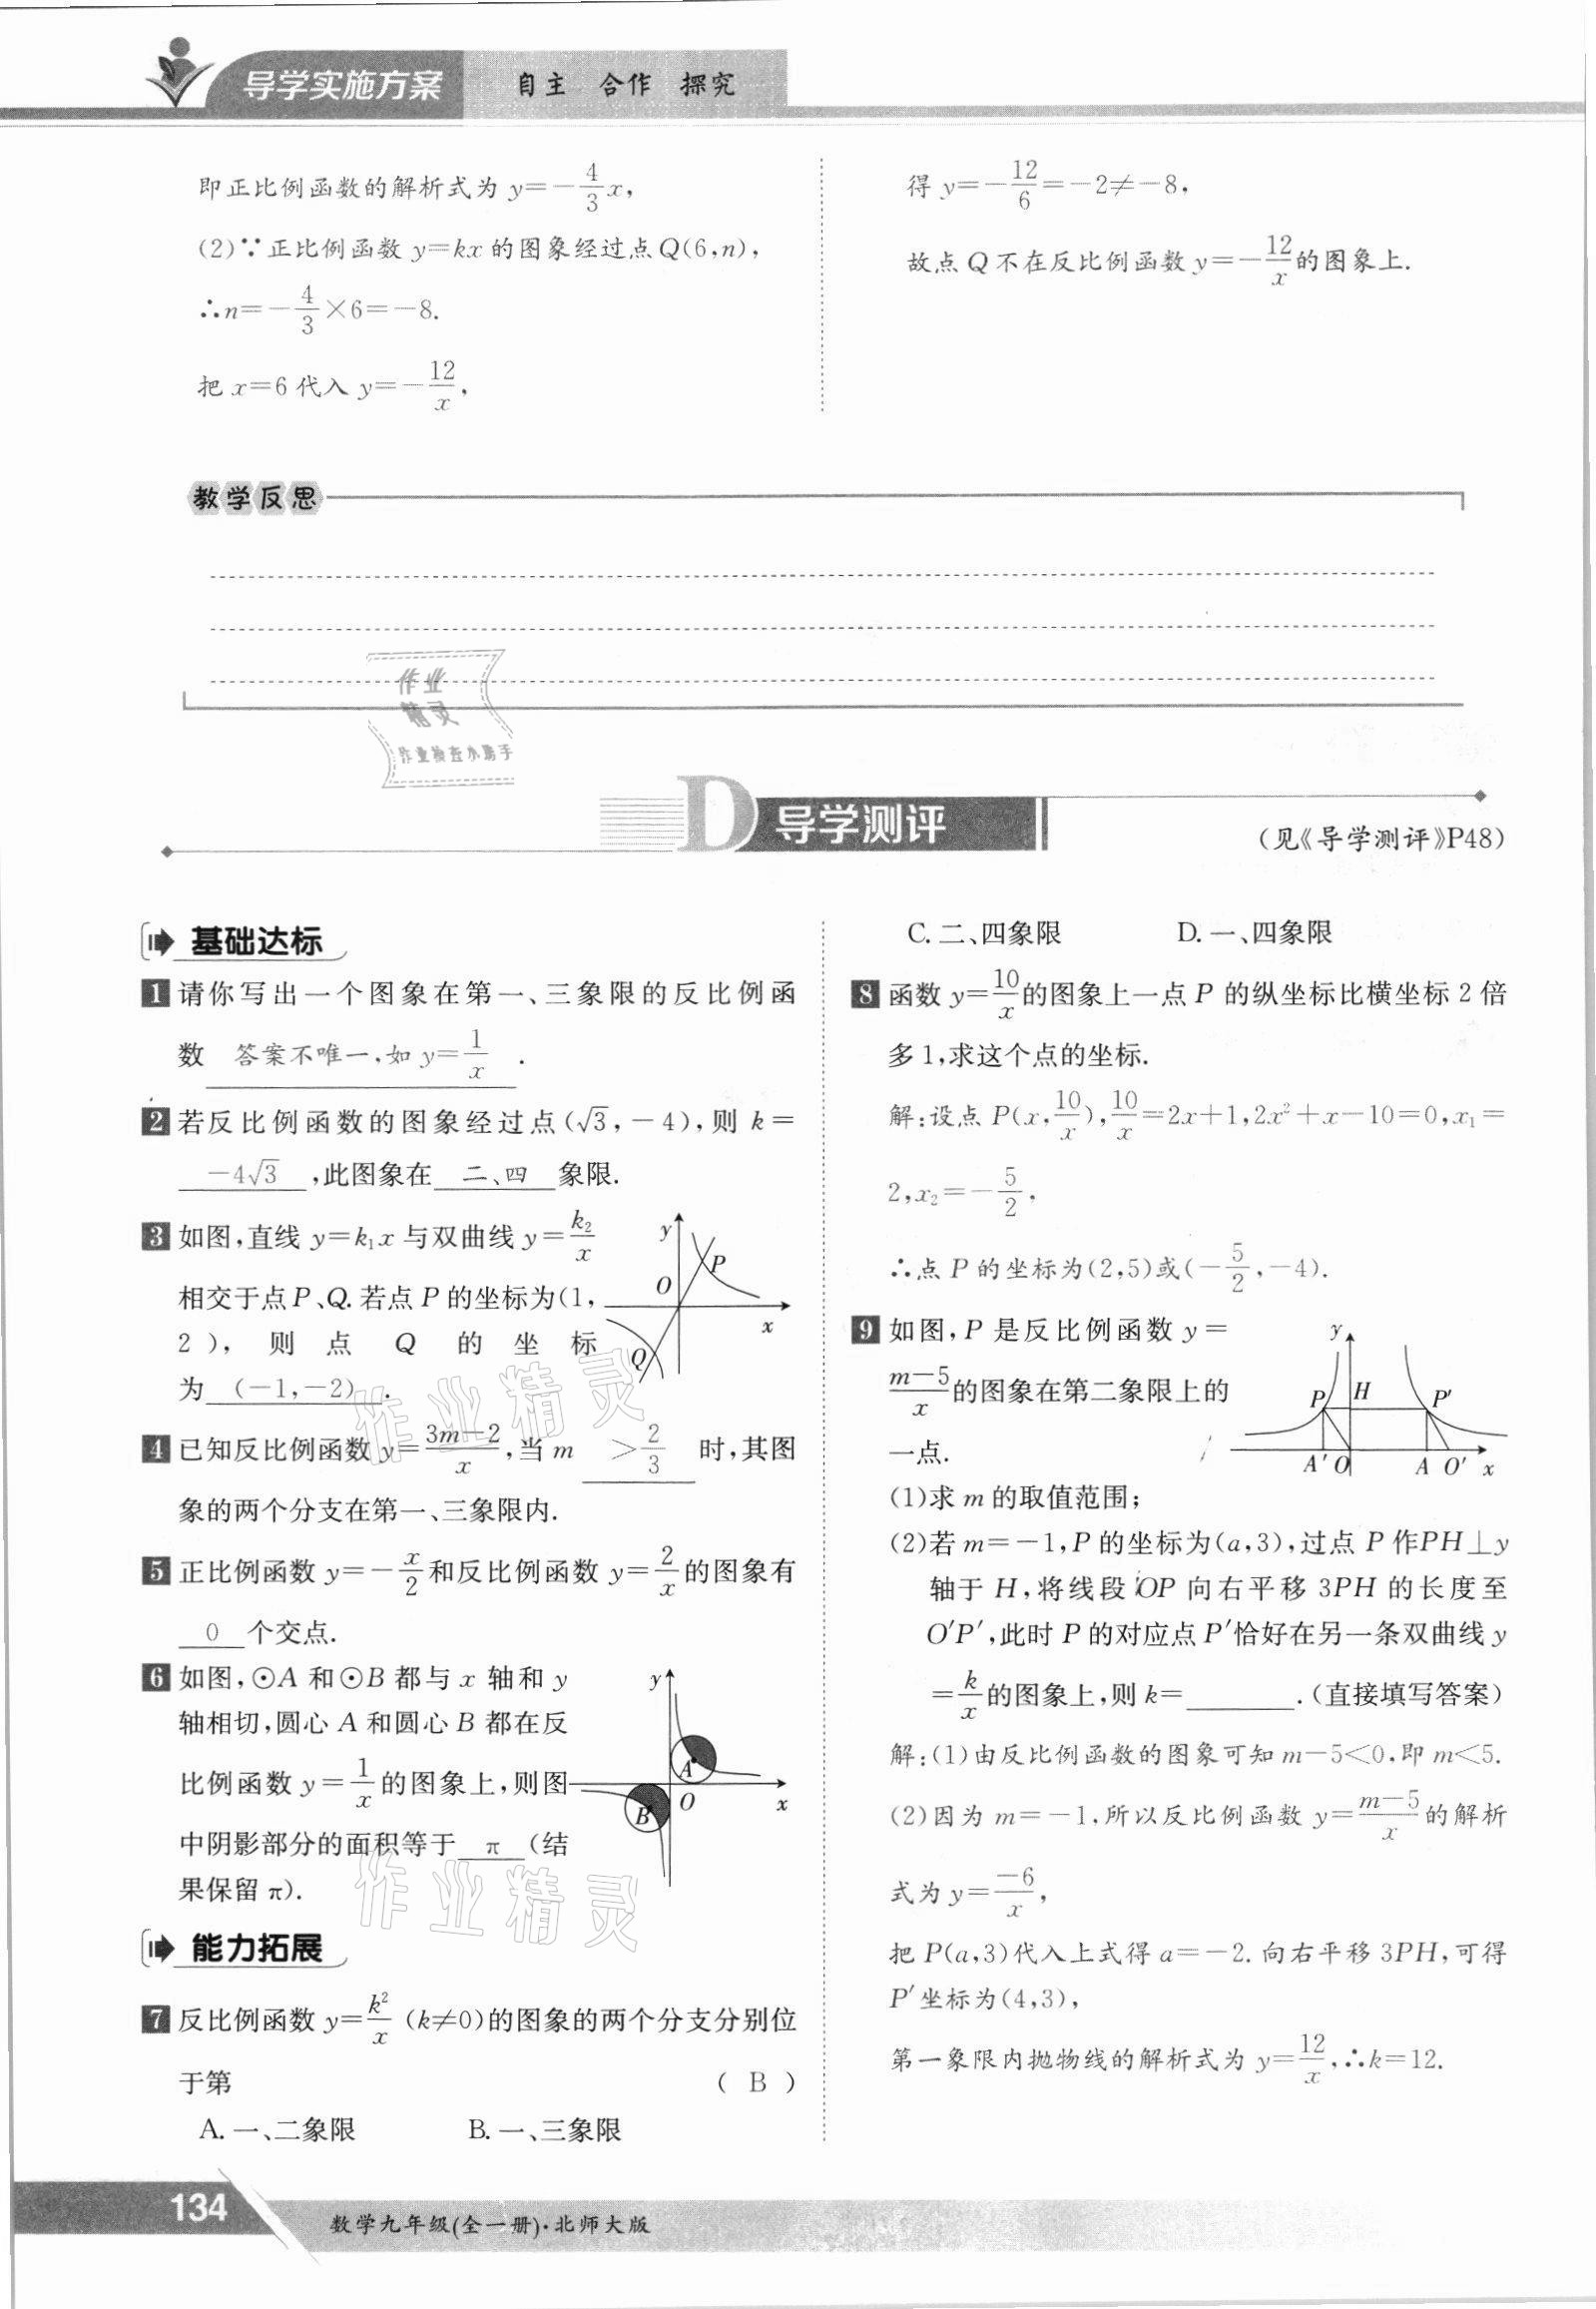 导学实施方案 自主 合作 探究
即正比例函数的解析式为 y=-4/3x,
(2)∵正比例函数 y=kx 的图象经过点 Q(6,n),
∴n=-4/3×6=-8.
把 x=6 代入 y=-12/x,
得 y=-12/6=-2≠-8,
故点 Q 不在反比例函数 y=-12/x的图象上.
教学反思
作业
精灵
作业检查小助手
D 导学测评
(见《导学测评》P48)
基础达标
1 请你写出一个图象在第一、三象限的反比例函
数 答案不唯一,如 y=1/x .
2 若反比例函数的图象经过点(√3,-4),则 k=
-4√3 ,此图象在 二、四 象限.
3 如图,直线 y=k₁x 与双曲线 y=k₂/x
相交于点 P、Q. 若点 P 的坐标为(1,
2),则点 Q 的坐标
为 (-1,-2) .
y P O x Q
4 已知反比例函数 y=3m-2/x,当 m >2/3 时,其图
象的两个分支在第一、三象限内.
5 正比例函数 y=-x/2和反比例函数 y=2/x的图象有
0 个交点.
6 如图,⊙A 和⊙B 都与 x 轴和 y
轴相切,圆心 A 和圆心 B 都在反
比例函数 y=1/x的图象上,则图
中阴影部分的面积等于 π (结
果保留 π).
y A B O x
能力拓展
7 反比例函数 y=k²/x (k≠0)的图象的两个分支分别位
于第 ( B )
A. 一、二象限 B. 一、三象限
C. 二、四象限 D. 一、四象限
8 函数 y=10/x的图象上一点 P 的纵坐标比横坐标 2 倍
多 1,求这个点的坐标.
解:设点 P(x,10/x),10/x=2x+1,2x²+x-10=0,x₁=
2,x₂=-5/2,
∴点 P 的坐标为(2,5)或(-5/2,-4).
9 如图,P 是反比例函数 y=
m-5/x的图象在第二象限上的
一点.
y P H P′ A′ O A O′ x
(1)求 m 的取值范围;
(2)若 m=-1,P 的坐标为(a,3),过点 P 作PH⊥y
轴于 H,将线段 OP 向右平移 3PH 的长度至
O′P′,此时 P 的对应点 P′恰好在另一条双曲线 y
=k/x的图象上,则 k= .(直接填写答案)
解:(1)由反比例函数的图象可知 m-5<0,即 m<5.
(2)因为 m=-1,所以反比例函数 y=m-5/x的解析
式为 y=-6/x,
把 P(a,3)代入上式得 a=-2. 向右平移 3PH,可得
P′坐标为(4,3),
第一象限内抛物线的解析式为 y=12/x,∴k=12.
作业精灵
作业精灵
134 数学九年级(全一册)·北师大版